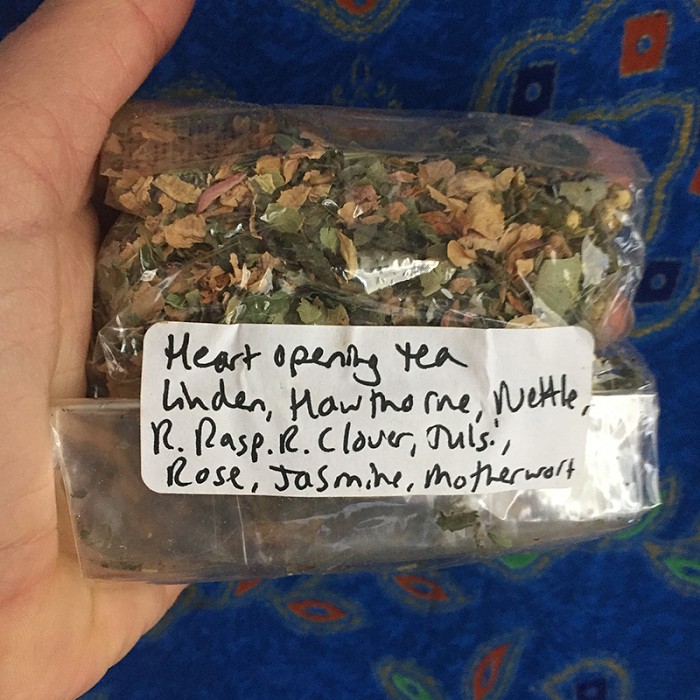 Heart opening tea
Linden, Hawthorne, Nettle,
R. Rasp. R. Clover, Tulsi,
Rose, Jasmine, Motherwort